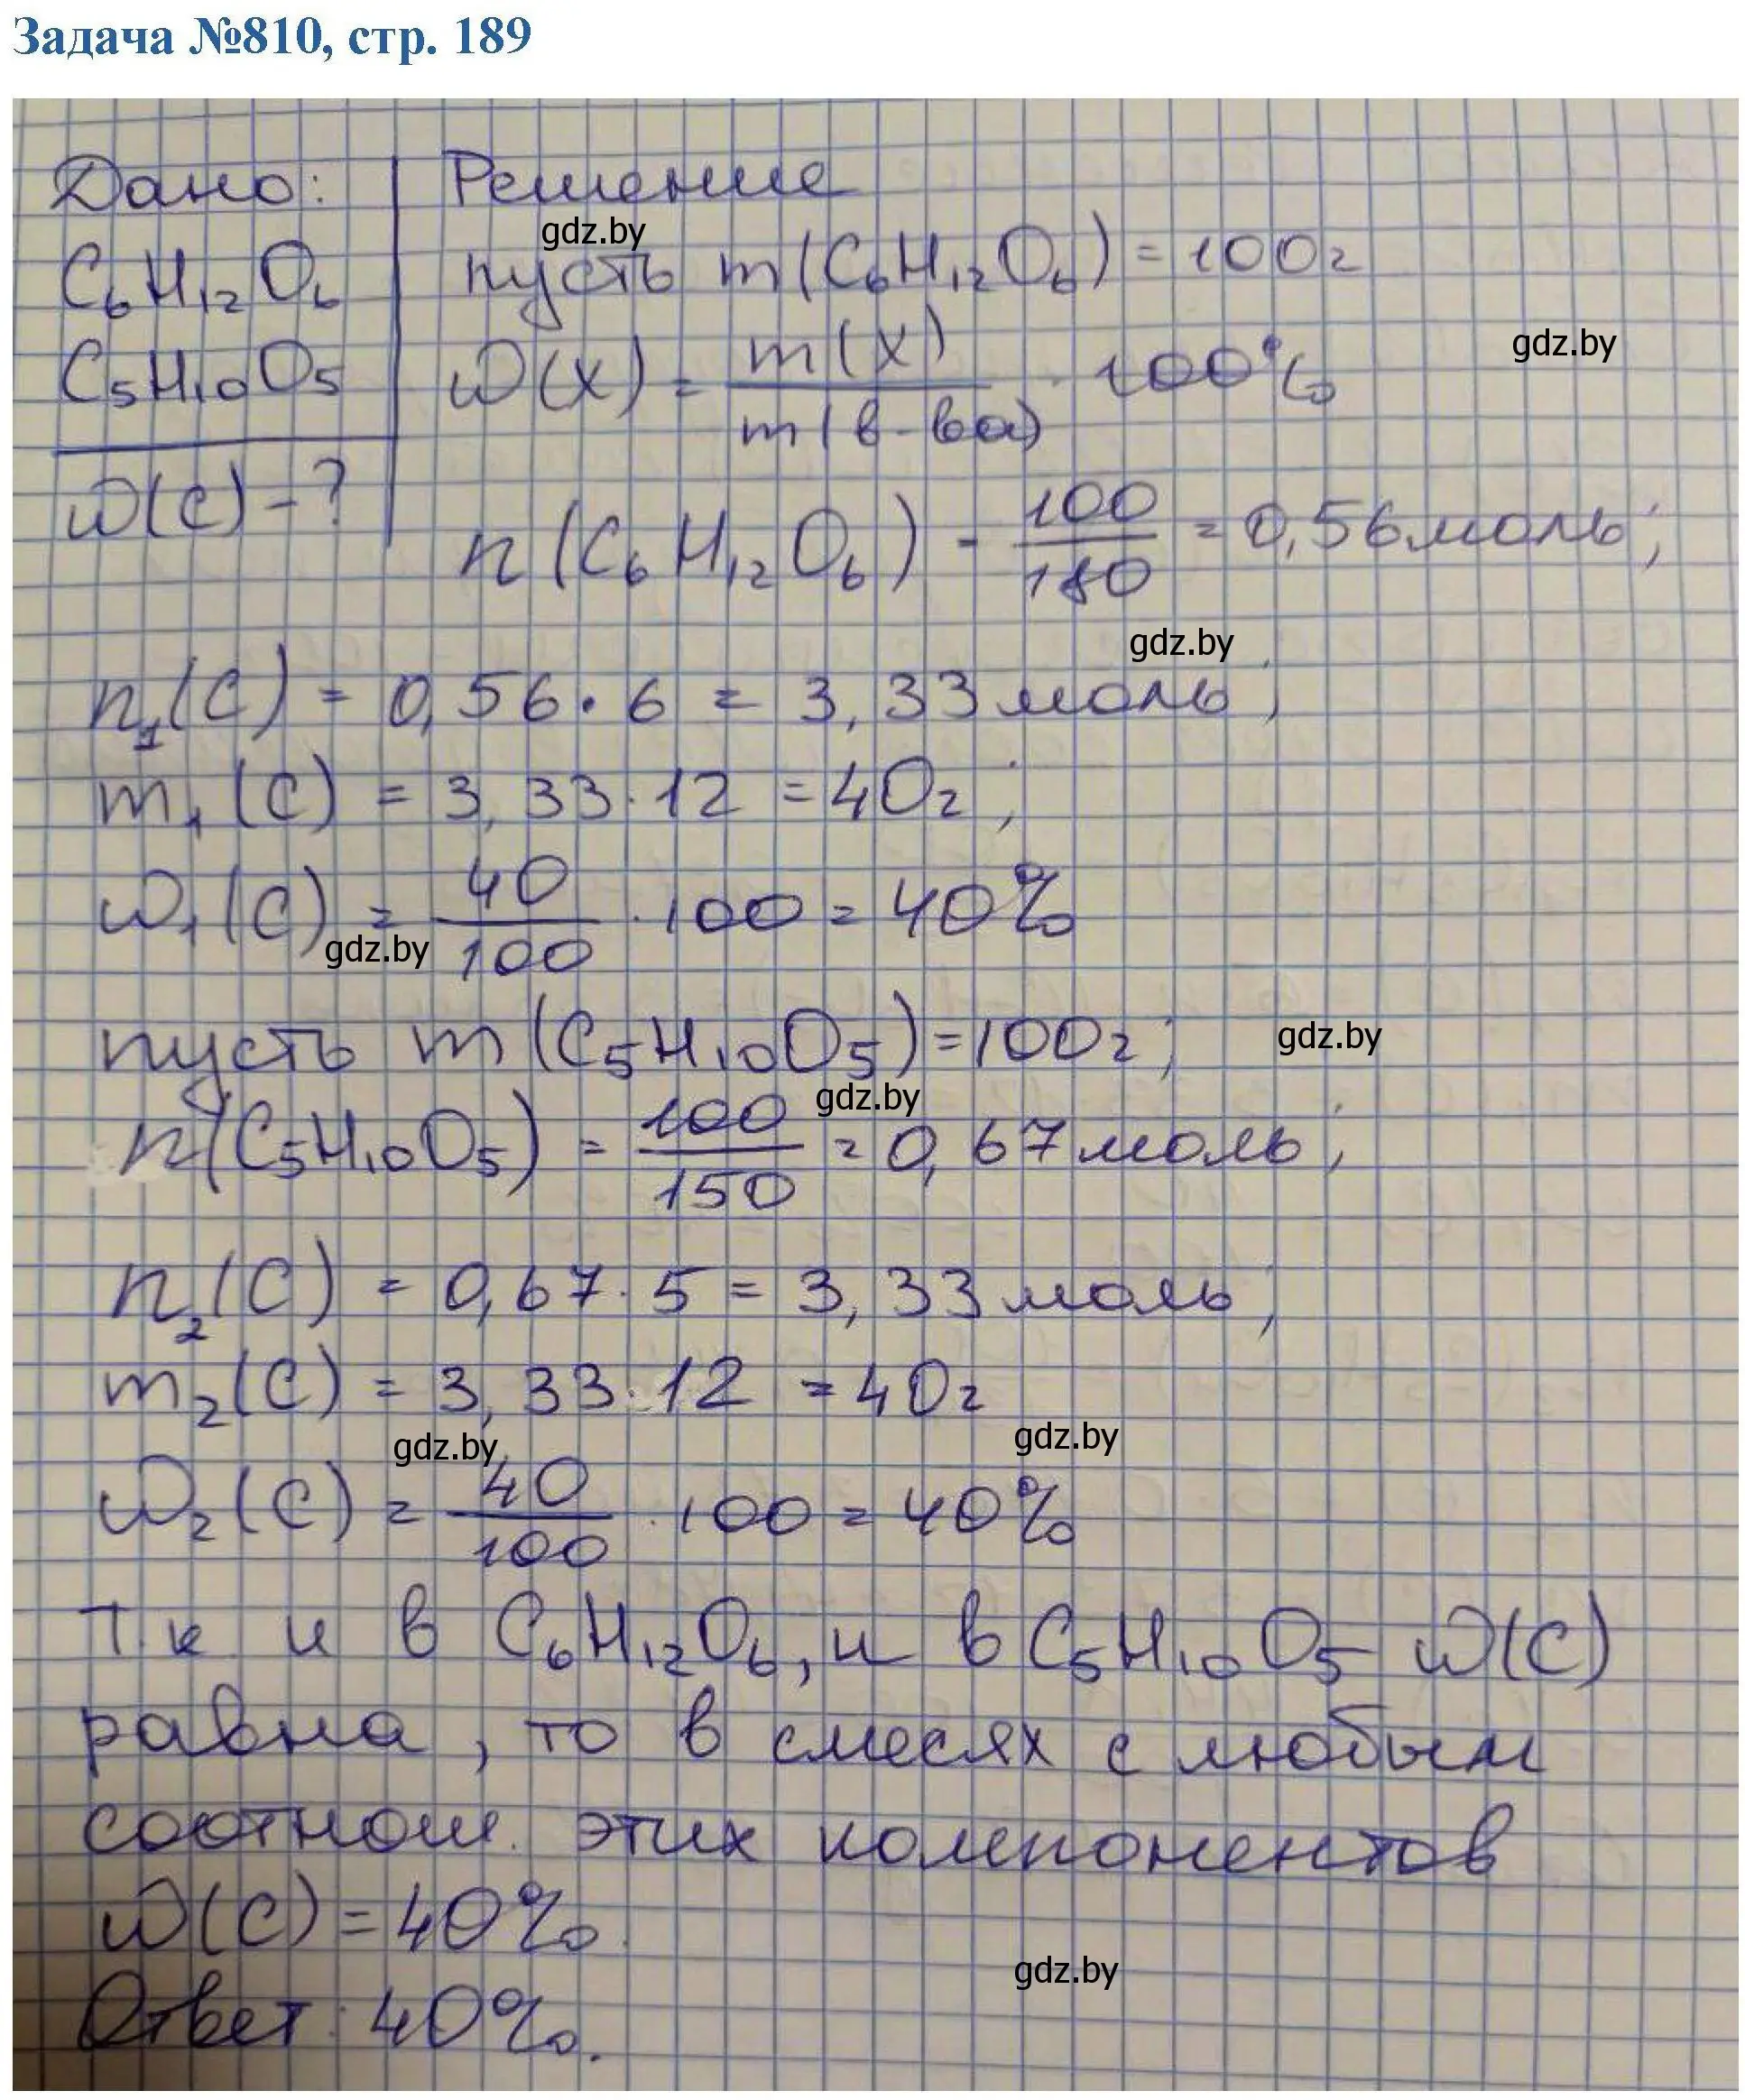 Задача №810, стр. 189
Дано:
Решение
gdz.by
C₆H₁₂O₆
пусть m(C₆H₁₂O₆) = 100г
C₅H₁₀O₅
ω(x) = m(x) / m(в-ва) · 100%
gdz.by
ω(C) - ?
n(C₆H₁₂O₆) = 100/180 = 0,56 моль;
gdz.by
n₁(C) = 0,56 · 6 = 3,33 моль;
m₁(C) = 3,33 · 12 = 40г;
ω₁(C) = 40/100 · 100 = 40%
gdz.by
пусть m(C₅H₁₀O₅) = 100г;
gdz.by
gdz.by
n(C₅H₁₀O₅) = 100/150 = 0,67 моль;
n₂(C) = 0,67 · 5 = 3,33 моль;
m₂(C) = 3,33 · 12 = 40г
gdz.by
gdz.by
ω₂(C) = 40/100 · 100 = 40%
Т. к и в C₆H₁₂O₆, и в C₅H₁₀O₅ ω(C)
равна, то в смесях с любым
соотнош. этих компонентов
ω(C) = 40%.
gdz.by
Ответ: 40%.